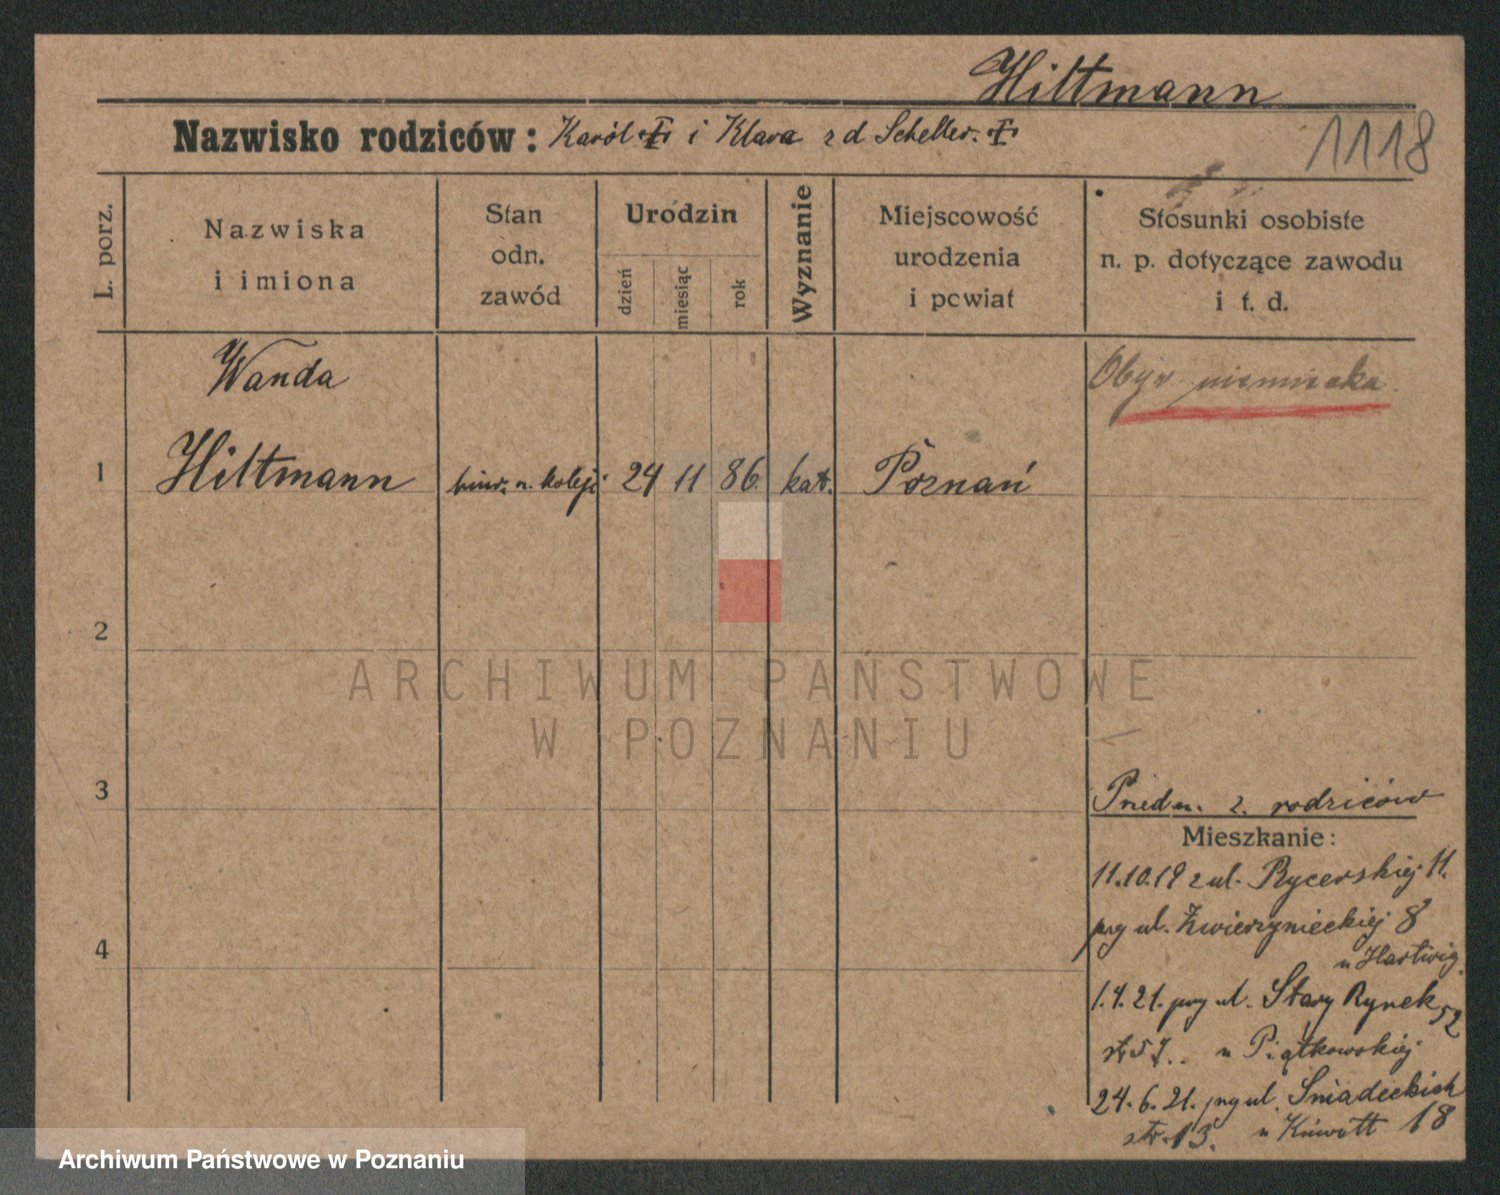 Hiltmann
Nazwisko rodziców: Karól i Klara z d Scheller.
1118
L. porz.
Nazwiska
i imiona
Stan
odn.
zawód
Urodzin
dzień
miesiąc
rok
Wyznanie
Miejscowość
urodzenia
i powiat
Stosunki osobiste
n. p. dotyczące zawodu
i t. d.
Wanda
Obyw niemiecka
1 Hiltmann n. koleji 24 11 86. kat. Poznań
2
ARCHIWUM PAŃSTWOWE
W POZNANIU
3
z. rodziców
Mieszkanie:
11.10.19 z ul. Rycerskiej 11.
4
prz ul. Zwierzynieckiej 8
u Hartwig.
1.4.21. prz ul. Stary Rynek 52
u Piątkowskiej
24.6.21. prz ul. Śniadeckich
18
str. 13. u
Archiwum Państwowe w Poznaniu